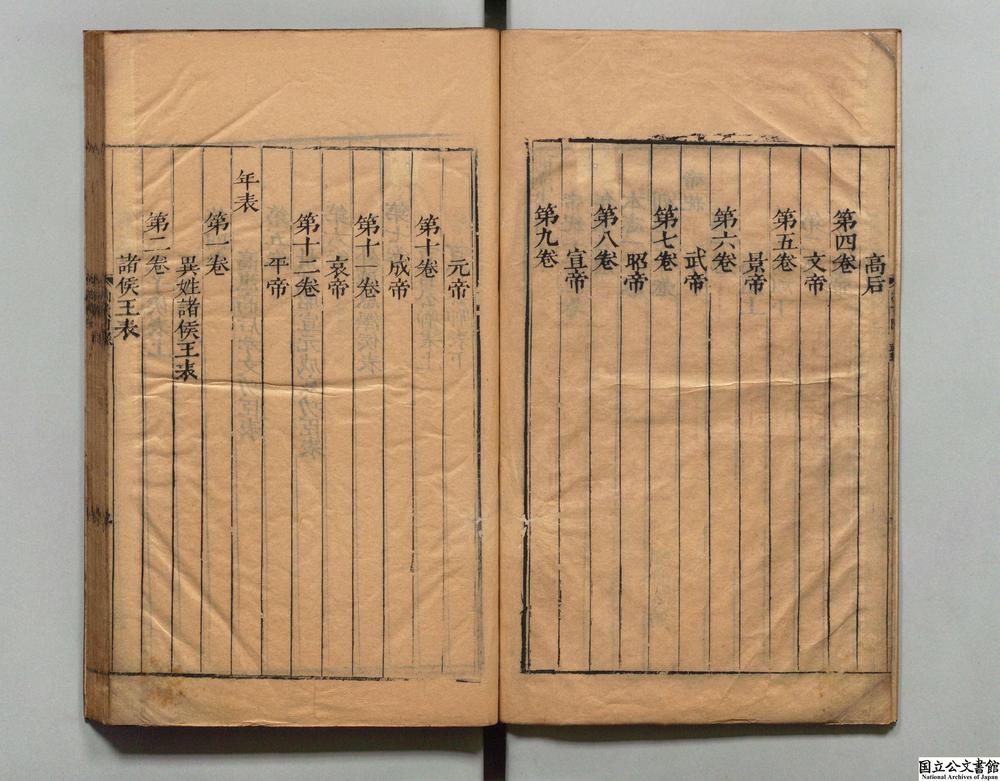 高后
第四卷
文帝
第五卷
景帝
第六卷
武帝
第七卷
昭帝
第八卷
宣帝
第九卷
元帝
第十卷
成帝
第十一卷
哀帝
第十二卷
平帝
年表
第一卷
異姓諸侯王表
第二卷
諸侯王表
国立公文書館
National Archives of Japan